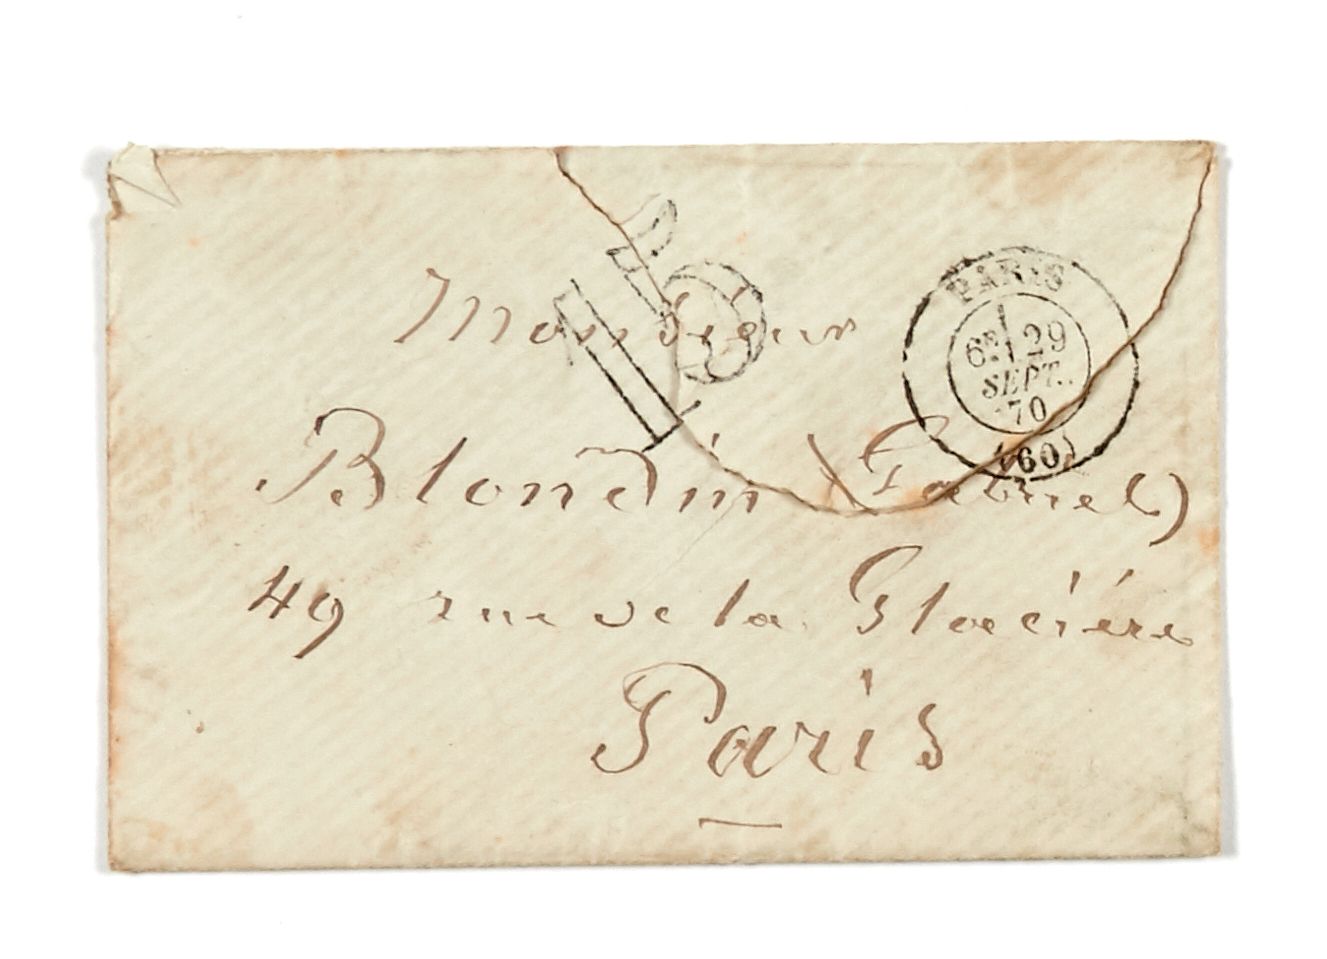 15
PARIS
6E 29
SEPT.
70
(60)
Monsieur
Blondin (Gabriel)
49 rue de la Glacière
Paris